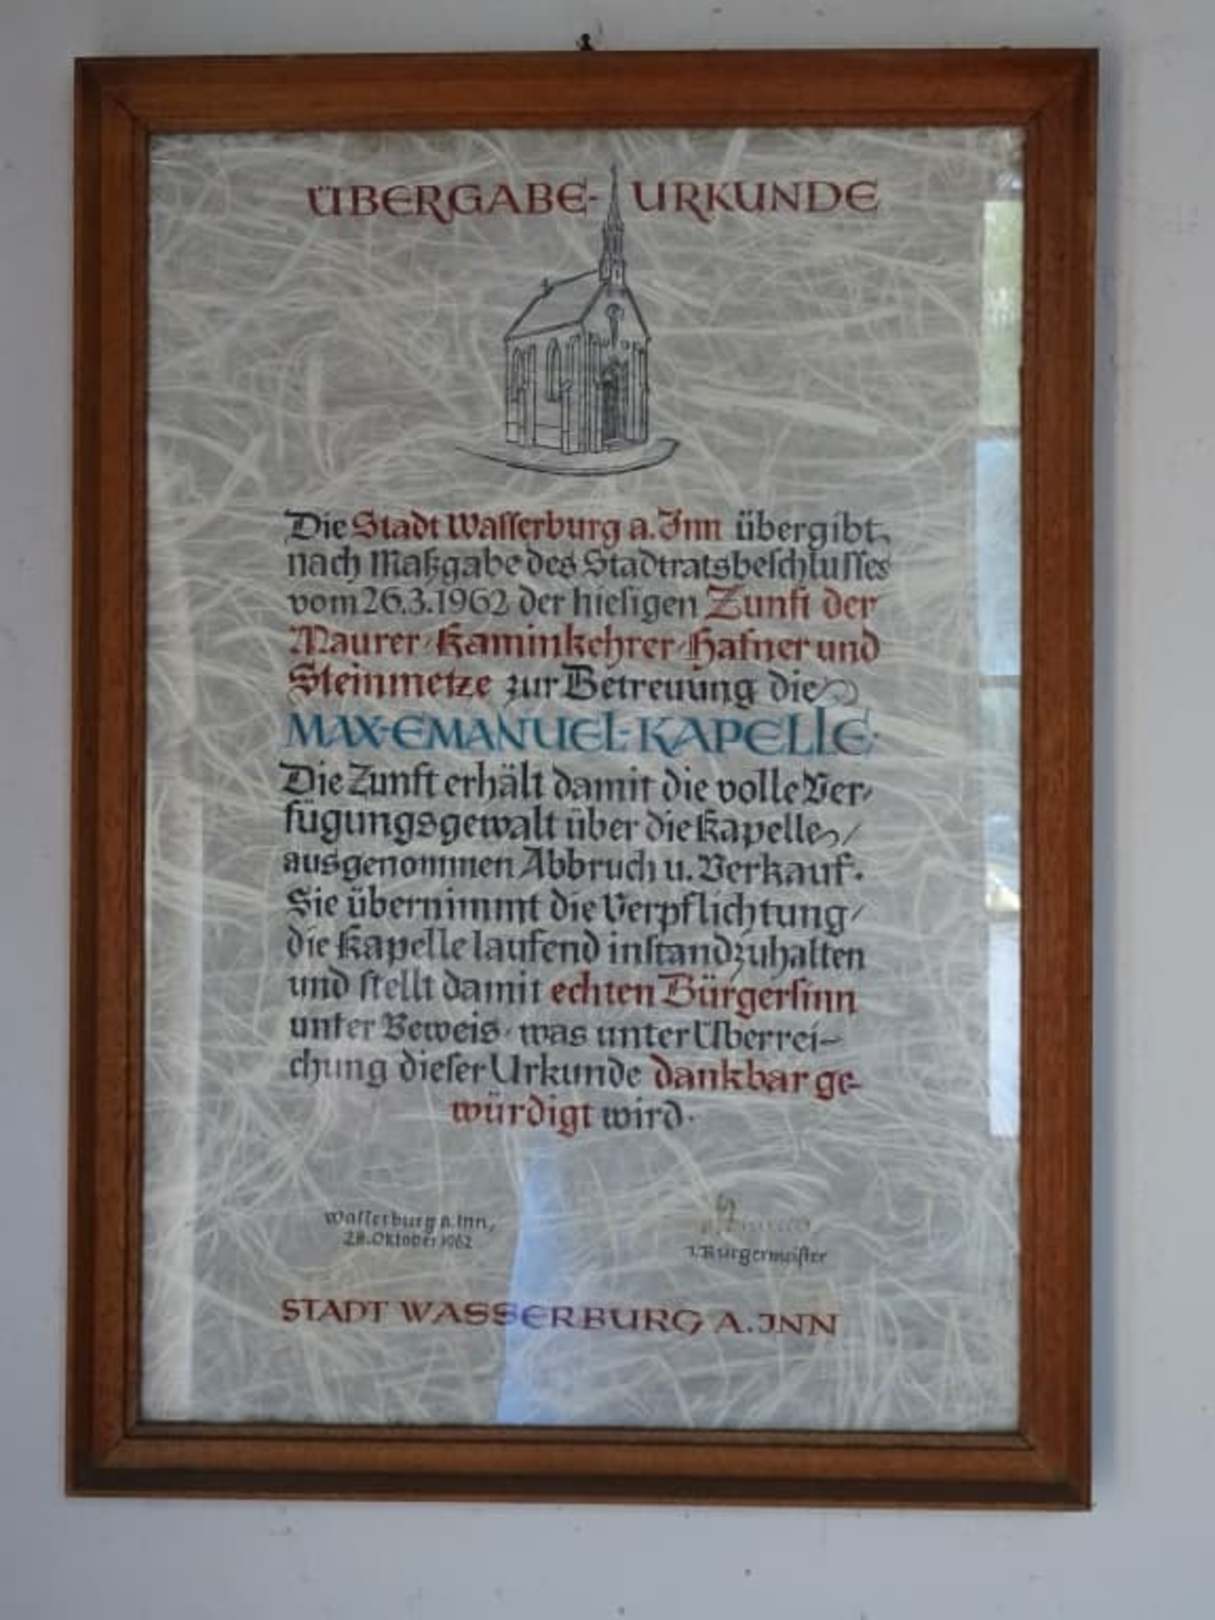 ÜBERGABE-URKUNDE
Die Stadt Wasserburg a. Inn übergibt
nach Maßgabe des Stadtratsbeschlusses
vom 26.3.1962 der hiesigen Zunft der
Maurer·Kaminkehrer·Hafner und
Steinmetze zur Betreuung die
MAX-EMANUEL-KAPELLE·
Die Zunft erhält damit die volle Ver-
fügungsgewalt über die Kapelle/
ausgenommen Abbruch u. Verkauf.
Sie übernimmt die Verpflichtung/
die Kapelle laufend instandzuhalten
und stellt damit echten Bürgersinn
unter Beweis· was unter Überrei-
chung dieser Urkunde dankbar ge-
würdigt wird.
Wasserburg a. Inn,
28. Oktober 1962
1. Bürgermeister
STADT WASSERBURG A. INN